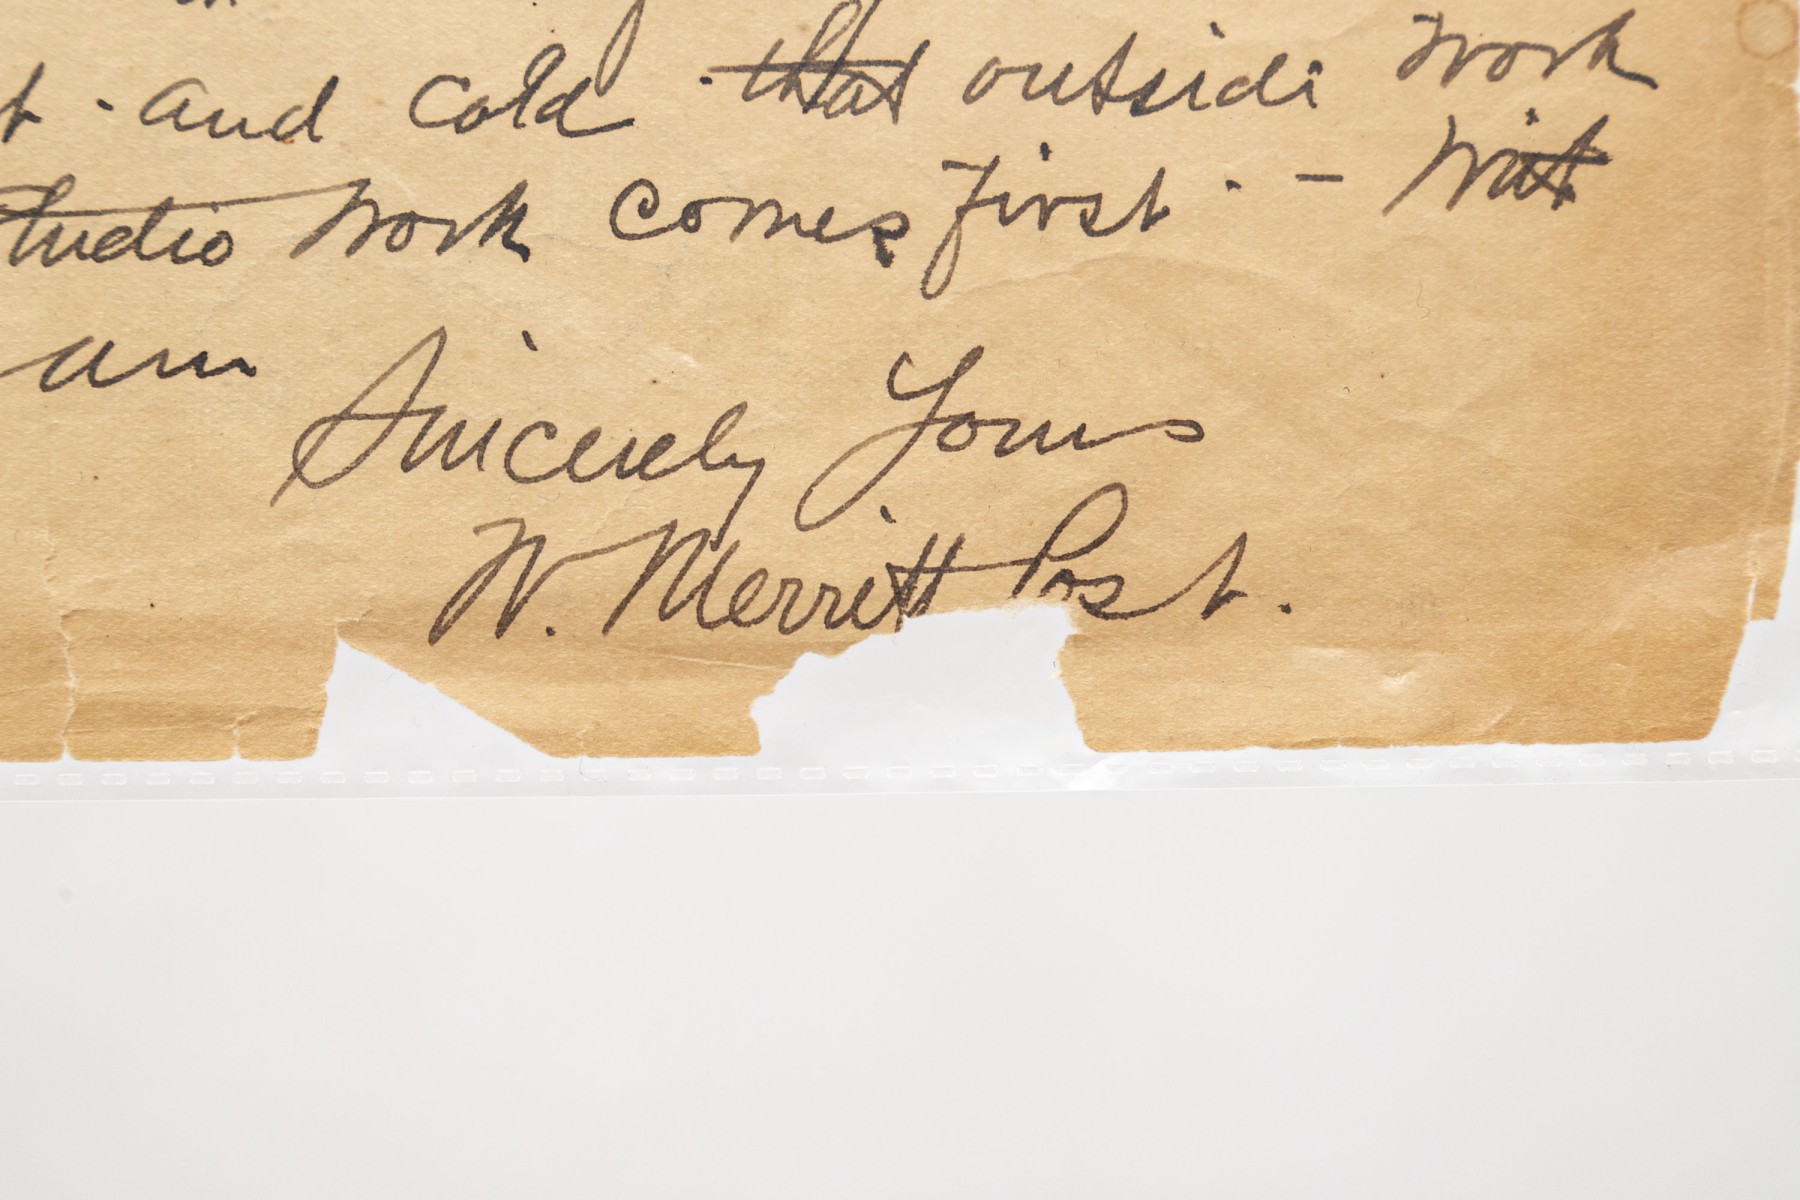 t - and cold - that outside work
tudio work comes first - - Wit
am
Sincerely Yours
W. Merritt Post.